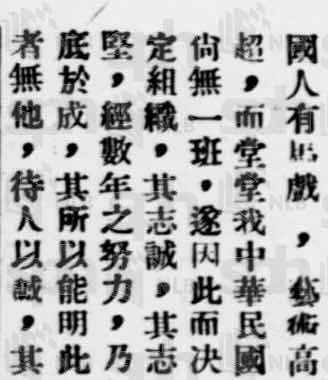 國人有馬戲，藝術高
超，而堂堂我中華民國
尙無一班，遂因此而决
定組織，其志誠，其志
堅，經數年之努力，乃
底於成，其所以能明此
者無他，待人以誠，其